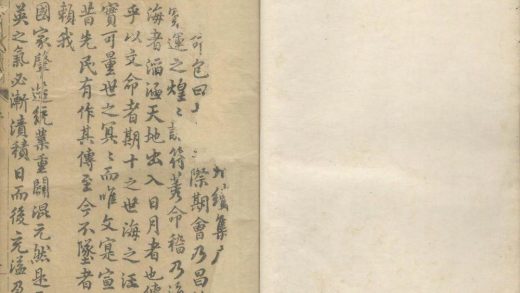 集
所包曰際期會乃昌
運之煌〻符蓍命稽乃海
海者滔涵天地出入日月者也使
乎以文命者期十之世海之汪
寶可量世之冥〻而唯文寔宣
昔先民有作其傳至今不墜者
賴我
國家肇造統業重闢混元然是
英之氣必漸漬積日而後充溢